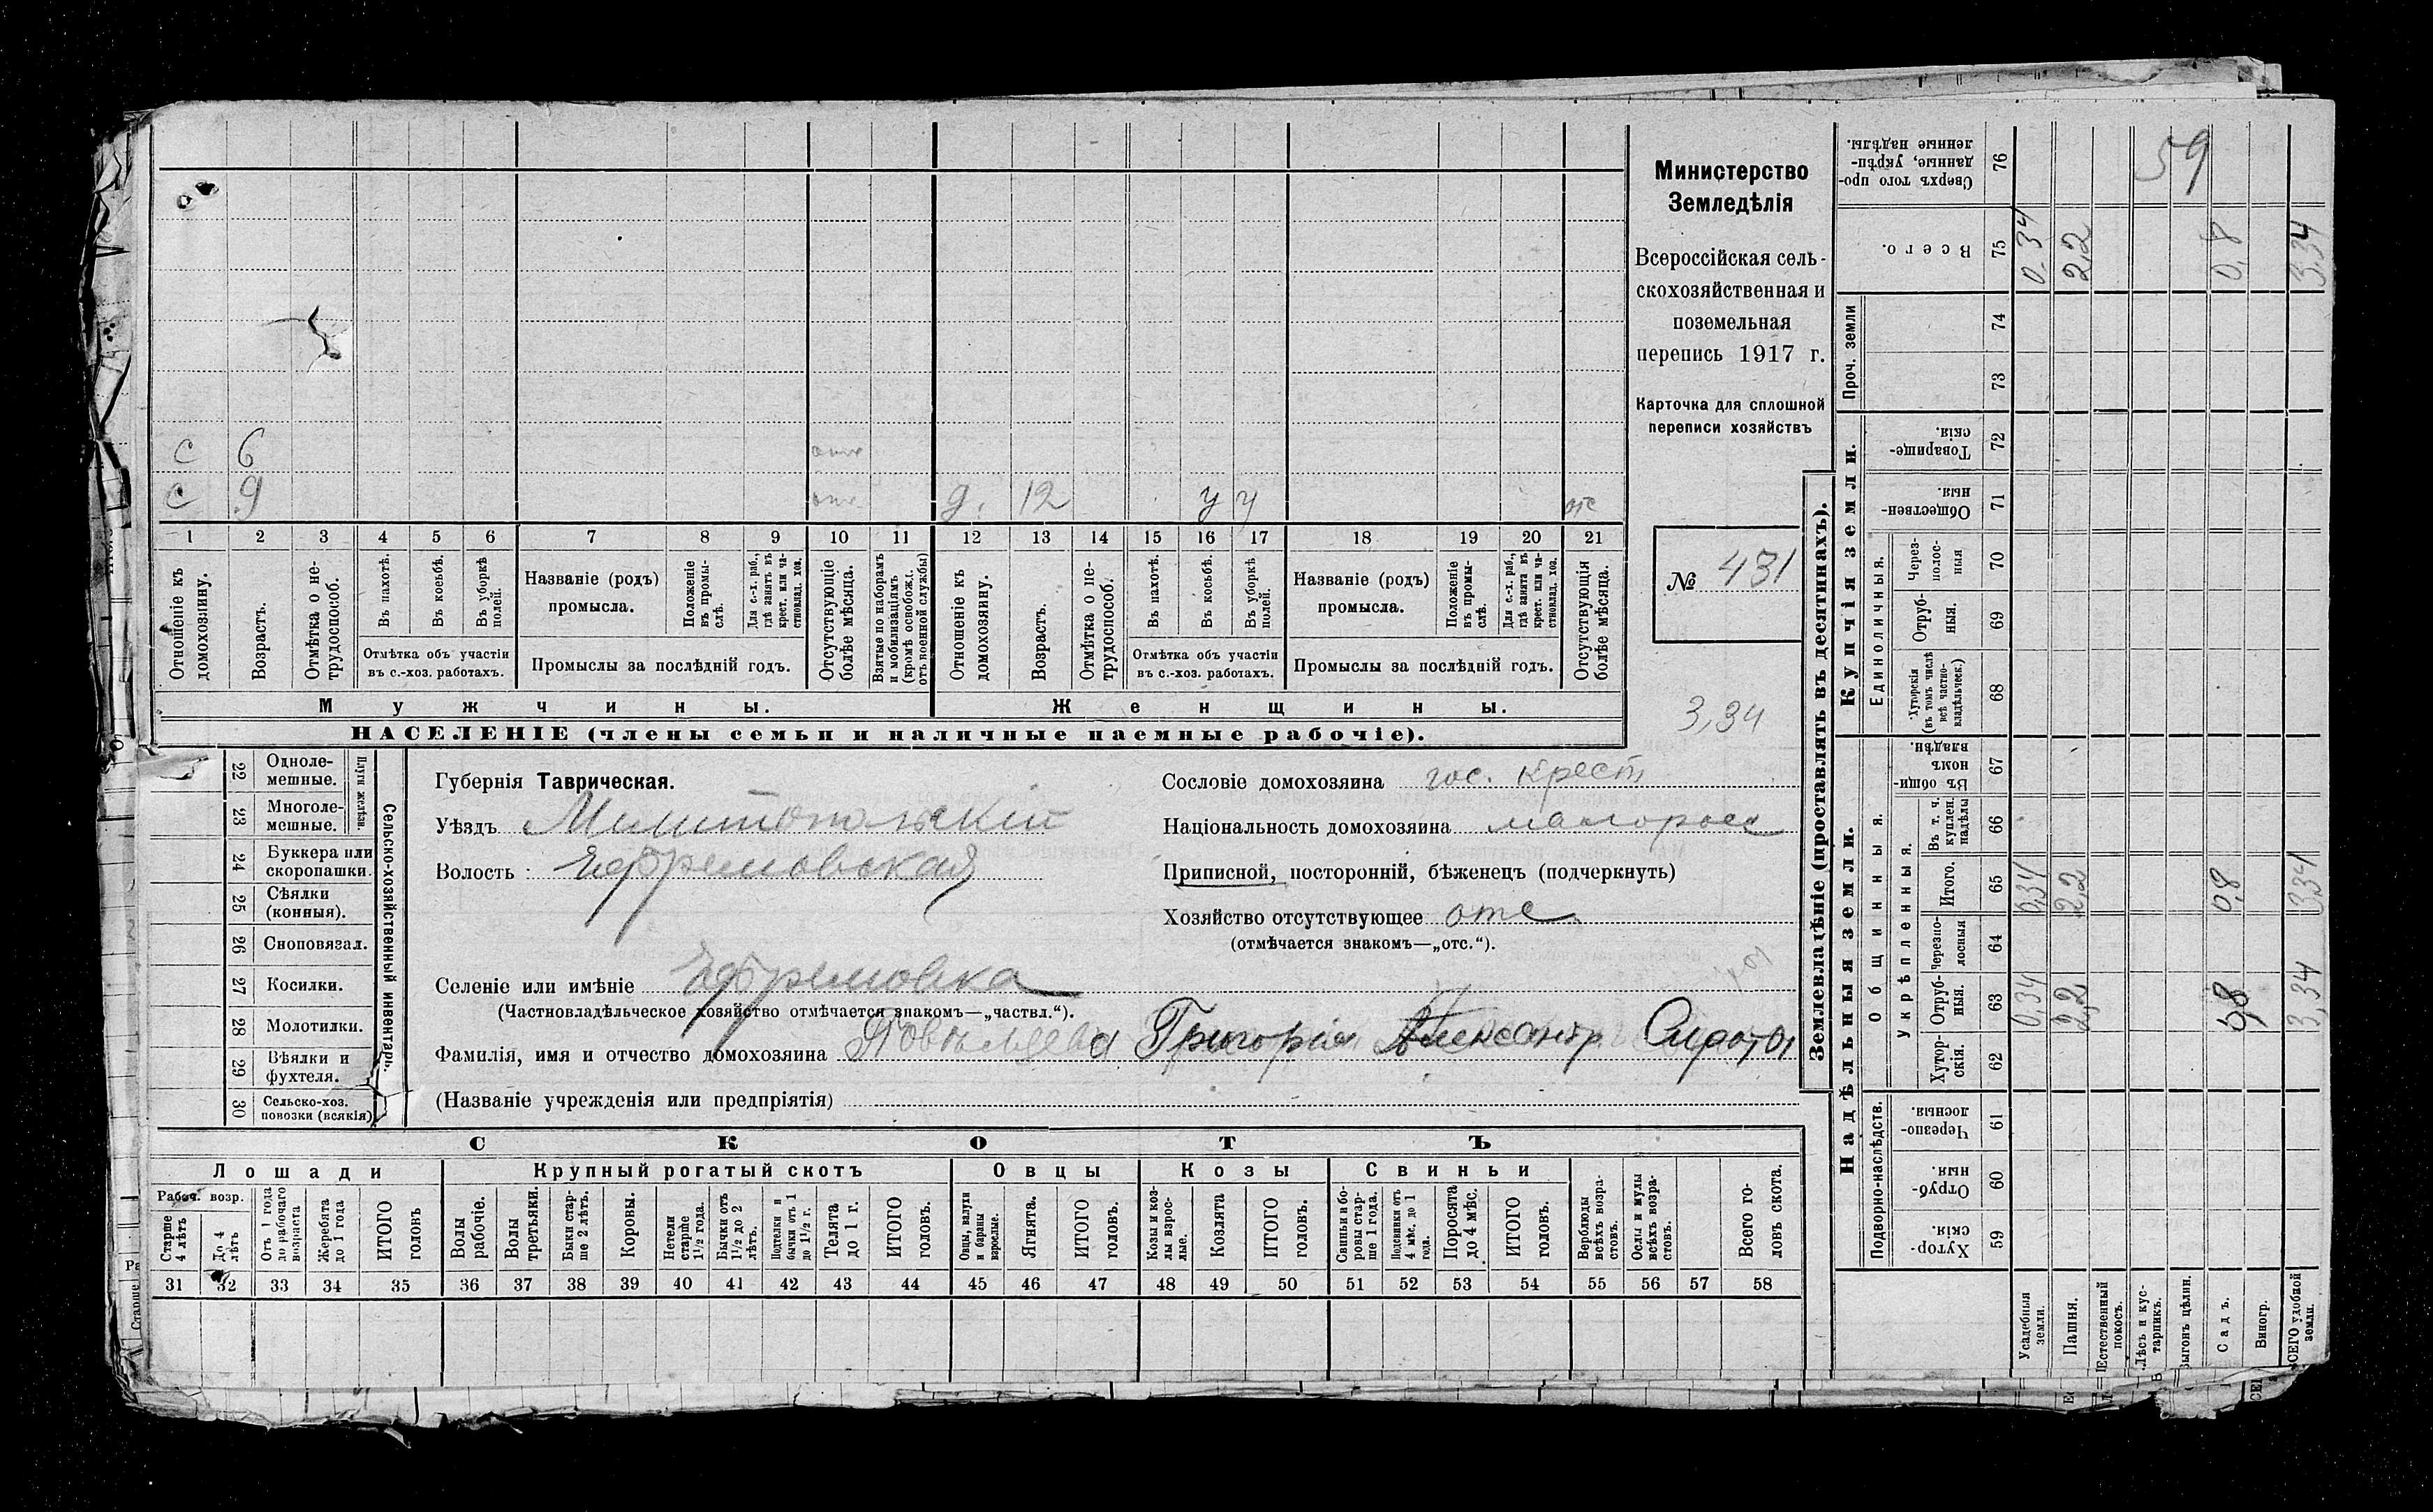 с 6 отс
с 9 отс д. 12 у у отс
1 2 3 4 5 6 7 8 9 10 11 12 13 14 15 16 17 18 19 20 21
Отношеніе къ домохозяину.
Возрастъ.
Отмѣтка о не-
трудоспособ.
Въ пахотѣ.
Въ косьбѣ.
Въ уборкѣ полей.
Отмѣтка объ участіи
въ с.-хоз. работахъ.
Названіе (родъ)
промысла.
Положеніе въ промы-
слѣ.
Для с.-х. раб.,
гдѣ занятъ въ
крест. или ча-
стновлад. хоз.
Промыслы за послѣдній годъ.
Отсутствующіе
болѣе мѣсяца.
Взятые по наборамъ
и мобилизаціямъ
(кромѣ освобожд.
отъ военной службы)
Отношеніе къ
домохозяину.
Возрастъ.
Отмѣтка о не-
трудоспособ.
Въ пахотѣ.
Въ косьбѣ.
Въ уборкѣ полей.
Отмѣтка объ участіи
въ с.-хоз. работахъ.
Названіе (родъ)
промысла.
Положеніе
въ промы-
слѣ.
Для с.-х. раб.,
гдѣ занята въ
крест. или ча-
стновлад. хоз.
Промыслы за послѣдній годъ.
Отсутствующія
болѣе мѣсяца.
Мужчины.
Женщины.
НАСЕЛЕНІЕ (члены семьи и наличные наемные рабочіе).
Министерство
Земледѣлія
Всероссійская сель-
скохозяйственная и
поземельная
перепись 1917 г.
Карточка для сплошной
переписи хозяйствъ
№ 431
3,34
22 Одноле-
мешные.
23 Многоле-
мешные.
Плуги желѣзн.
24 Буккера или
скоропашки.
25 Сѣялки
(конныя).
26 Сноповязал.
27 Косилки.
28 Молотилки.
29 Вѣялки и
фухтеля.
30 Сельско-хоз.
повозки (всякія)
Сельско-хозяйственный инвентарь.
Губернія Таврическая.
Уѣздъ Мелитопольскій
Волость: Ефремовская
Селеніе или имѣніе Ефремовка
(Частновладѣльческое хозяйство отмѣчается знакомъ—„частвл.“).
Сословіе домохозяина гос. крест
Національность домохозяина малоросс
Приписной, посторонній, бѣженецъ (подчеркнуть)
Хозяйство отсутствующее отс
(отмѣчается знакомъ—„отс.“).
Фамилія, имя и отчество домохозяина Григорія Александр. Сироты
(Названіе учрежденія или предпріятія)
СКОТЪ
Лошади
Крупный рогатый скотъ
Овцы
Козы
Свиньи
Рабоч. возр.
Старше
4 лѣтъ
До 4
лѣтъ
Отъ 1 года
до рабочаго
возраста
Жеребята
до 1 года
ИТОГО
головъ
Волы
рабочіе.
Волы
третьяки.
Быки стар-
ше 2 лѣтъ.
Коровы.
Нетели
старше
1½ года.
Бычки отъ
1½ до 2
лѣтъ.
Подтелки и
бычки отъ 1
до 1½ г.
Телята
до 1 г.
ИТОГО
головъ.
Овцы, валухи
и бараны
взрослые.
Ягнята.
ИТОГО
головъ.
Козы и коз-
лы взрос-
лые.
Козлята
ИТОГО
головъ.
Свиньи и бо-
ровы стар-
ше 1 года.
Подсвинки отъ
4 мѣс. до 1
года.
Поросята
до 4 мѣс.
ИТОГО
головъ.
Верблюды
всѣхъ возра-
стовъ.
Ослы и мулы
всѣхъ возра-
стовъ.
Всего го-
ловъ скота.
31 32 33 34 35 36 37 38 39 40 41 42 43 44 45 46 47 48 49 50 51 52 53 54 55 56 57 58
Землевладѣніе (проставлять въ десятинахъ).
Надѣльныя земли.
Купчія земли.
Проч. земли
Подворно-наслѣдств.
Общинныя.
Укрѣпленныя.
Единоличныя.
Сверхъ того про-
данные, укрѣп-
ленные надѣлы. 76 59
Всего. 75 0,34 2,2 0,8 3,34
74
73
Товарище-
скія. 72
Обществен-
ныя. 71
Через-
полос-
ныя 70
Отруб-
ныя. 69
Хуторскія
(въ томъ числѣ
всѣ частно-
владѣльческ.) 68
Въ общи
номъ
владѣн. 67
Въ т. ч.
куплен.
надѣлы 66
Итого. 65 0,34 2,2 0,8 3,34
Черезпо-
лосныя 64
Отруб-
ныя. 63 0,34 2,2 0,8 3,34
Хутор-
скія. 62
Черезпо-
лосныя. 61
Отруб-
ныя. 60
Хутор-
скія. 59
Усадебныя
земли.
Пашня.
Естественный
покосъ.
Лѣсъ и кус-
тарникъ.
Выгонъ цѣлин.
Садъ.
Виногр.
ВСЕГО удобной
земли.